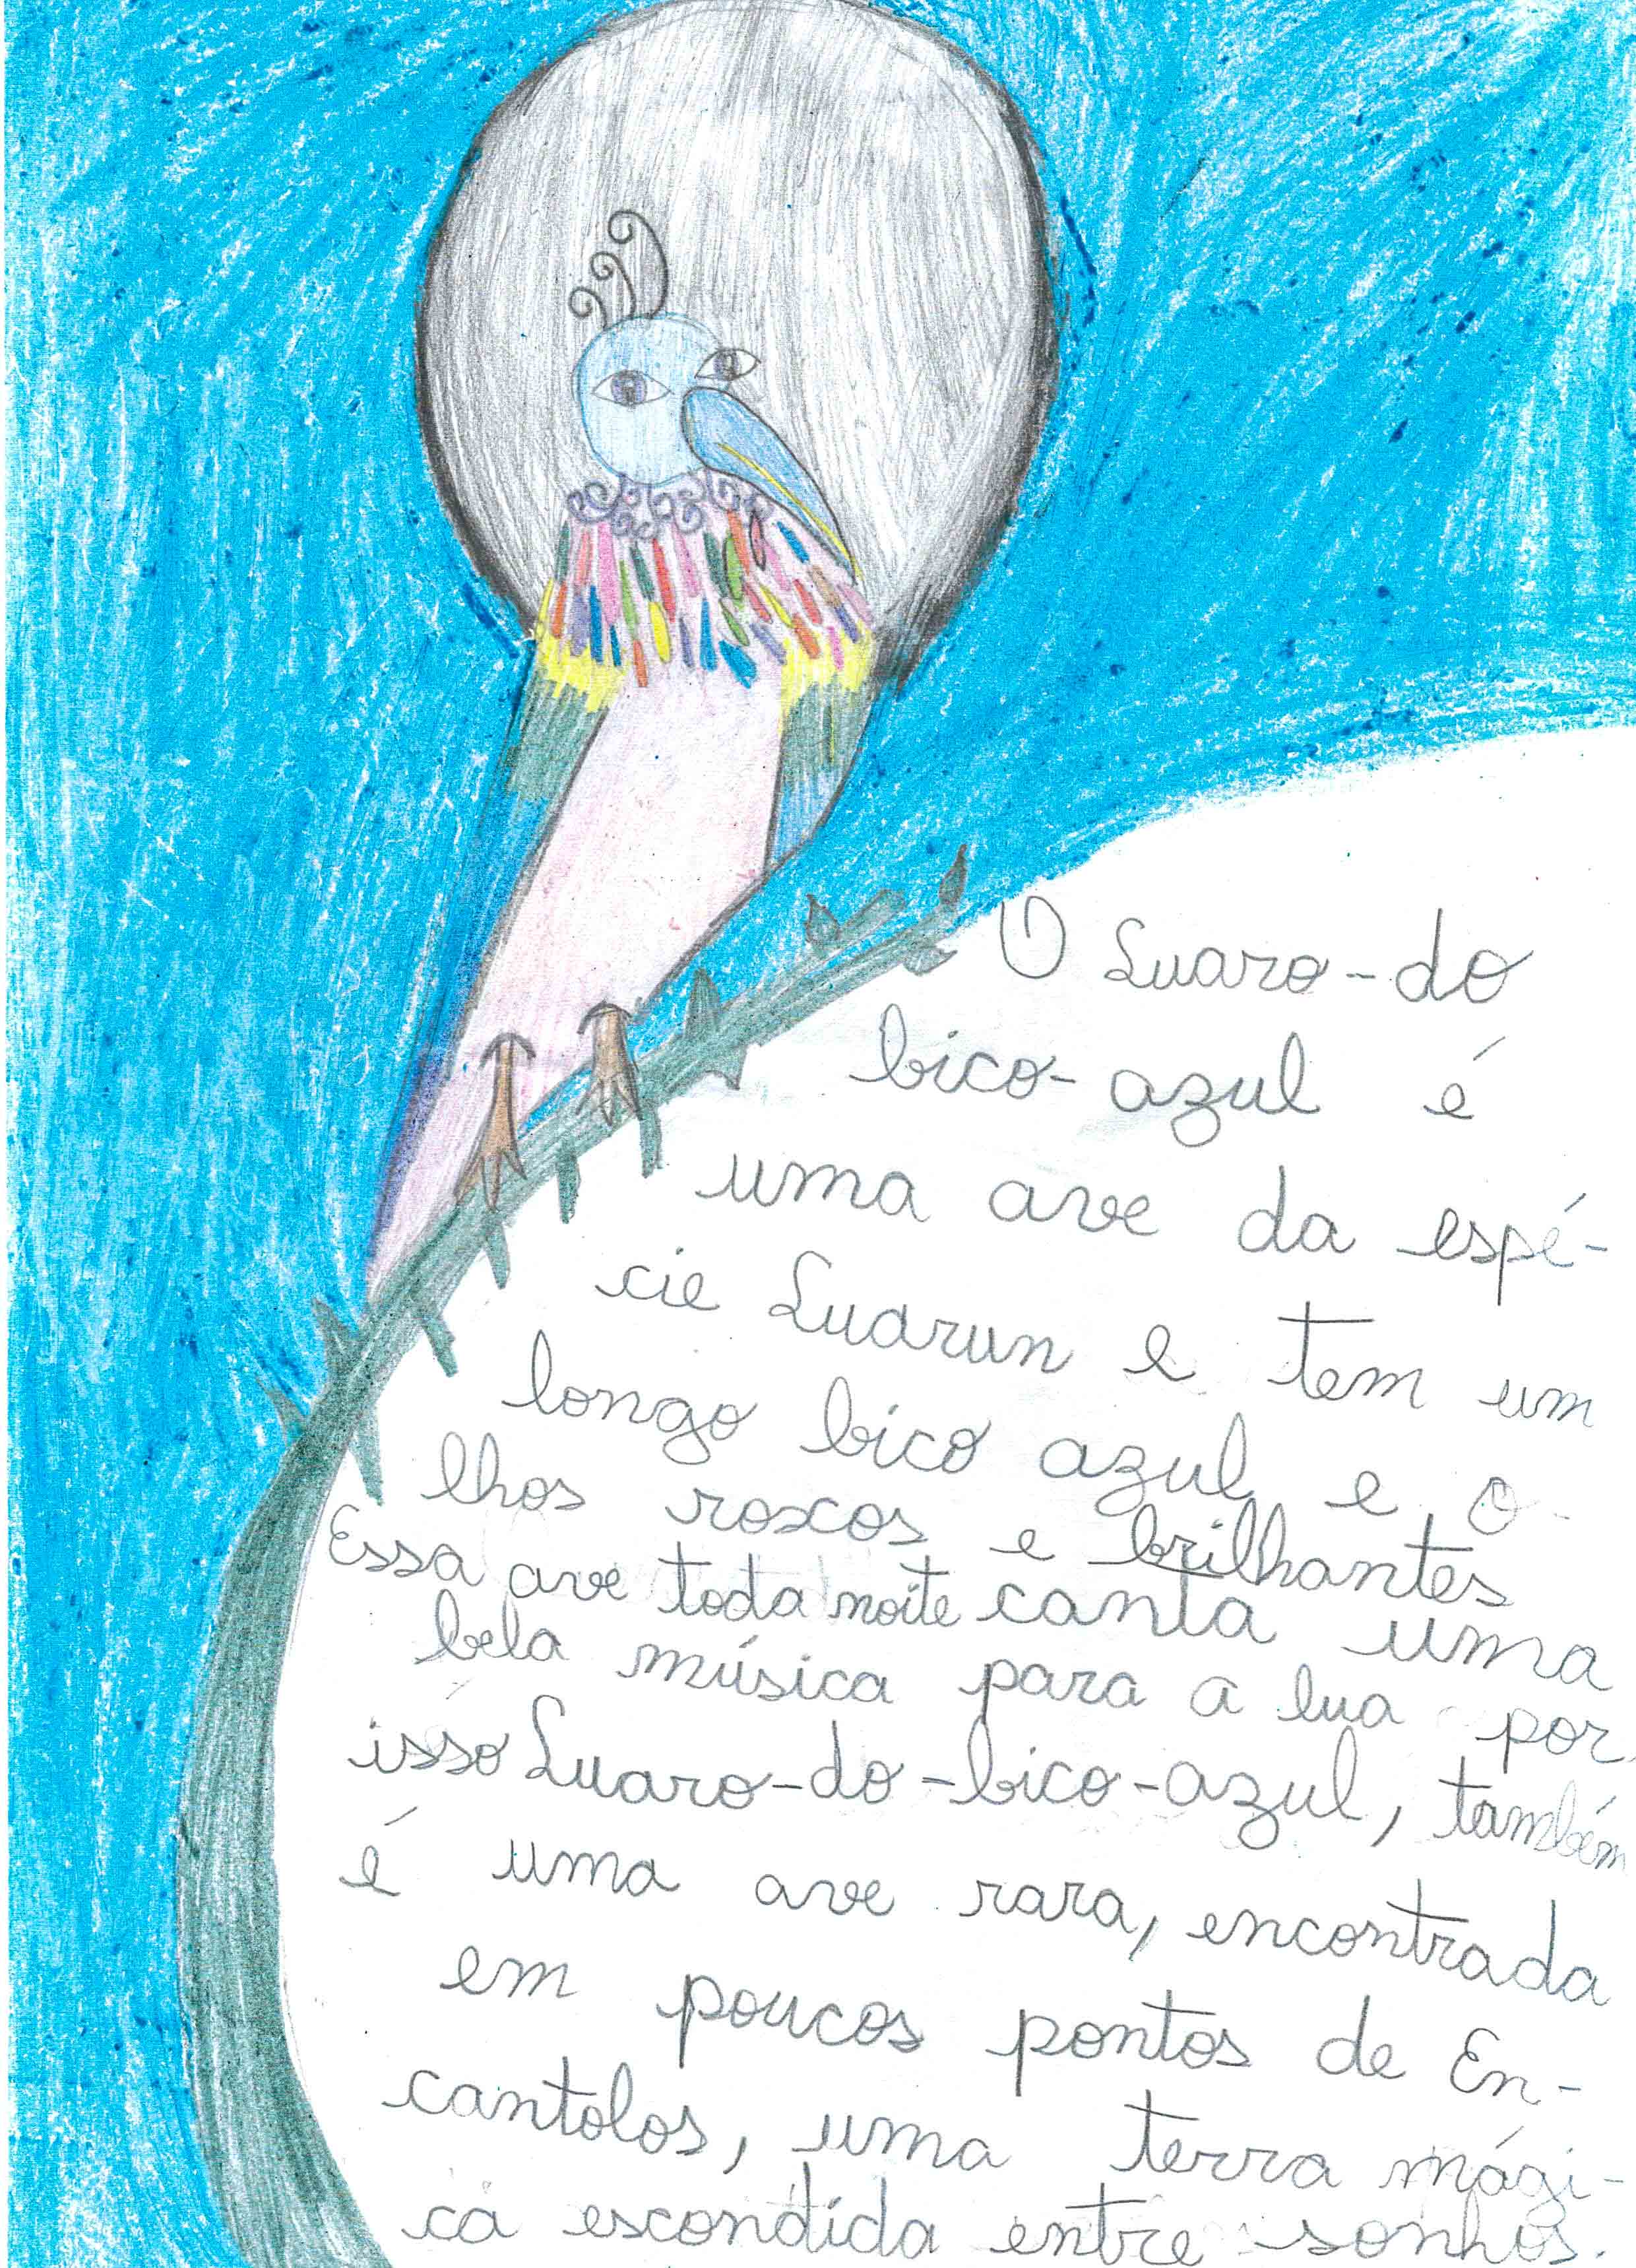 O Luaro-do
bico-azul é
uma ave da espé-
cie Luarun e tem um
longo bico azul e o-
lhos roxos e brilhantes
Essa ave toda noite canta uma
bela música para a lua por
isso Luaro-do-bico-azul, também
é uma ave rara, encontrada
em poucos pontos de En-
cantolos, uma terra mági-
ca escondida entre sonhos.